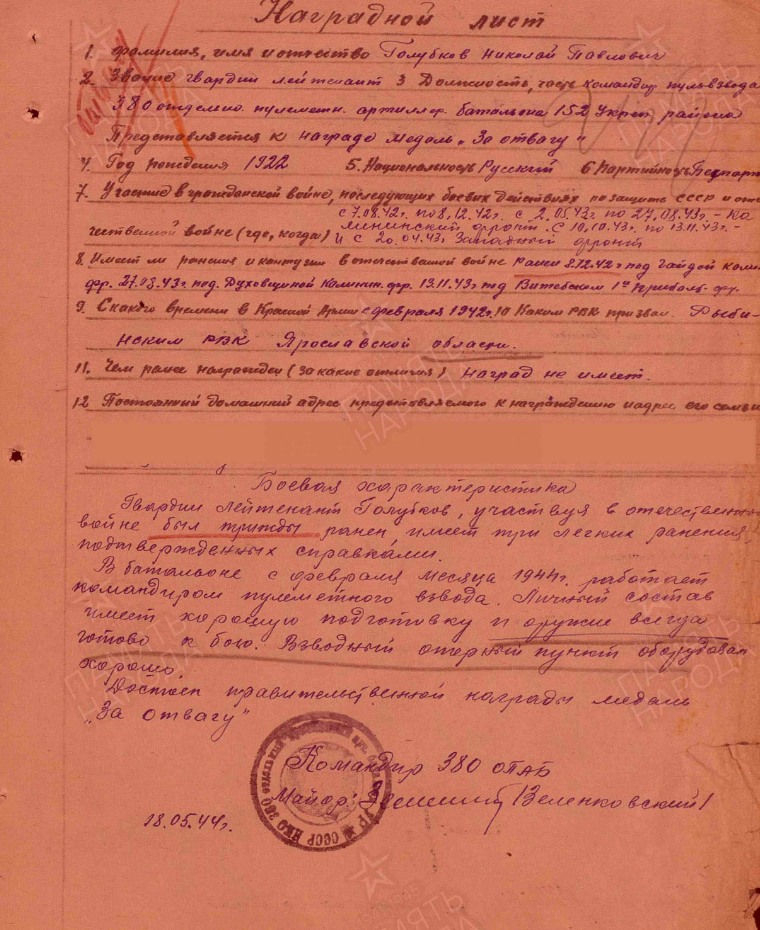 Наградной лист
1. Фамилия, имя и отчество Голубков Николай Павлович
2. Звание гвардии лейтенант 3 Должность, часть командир пульвзвода
380 отдельно. пулеметн. артиллер. батальона 152 Укреп района
Представляется к награде медаль „За отвагу"
4. Год рождения 1922 5. Национальность Русский 6 Партийность Беспарт
7. Участие в гражданской войне, последующих боевых действиях по защите СССР и оте
с 7.08.42г. по 8.12.42г. с 2.05.43г по 27.08.43г. - Ка
чественной войне (где, когда) лининский фронт. С 10.10.43г. по 13.11.43г. -
и с 20.04.43г Западный фронт
8. Имеет ли ранения и контузии в отечественной войне Ранен 8.12.42г под
фр. 27.08.43г. под. Духовщиной Калинин. фр. 13.11.43г под Витебском 1й прибалт. фр.
9. С какого времени в Красной Армии с февраля 1942г. 10 Каким РВК призван. Рыби-
нским РВК Ярославской области.
11. Чем ранее награжден (за какие отличия) Наград не имеет.
12 Постоянный домашний адрес представляемого к награждению и адрес его семьи
Боевая характеристика
Гвардии лейтенант Голубков, участвуя в отечественной
войне был трижды ранен, имеет три легких ранения,
подтвержденных справками.
В батальоне с февраля месяца 1944г. работает
командиром пулеметного взвода. Личный состав
имеет хорошую подготовку и оружие всегда
готово к бою. Взводный опорный пункт оборудовал
хорошо.
Достоен правительственной награды медаль
„За отвагу"
Командир 380 ОПАБ
Майор: Зеленковский
18.05.44г.
ПАМЯТЬ НАРОДА